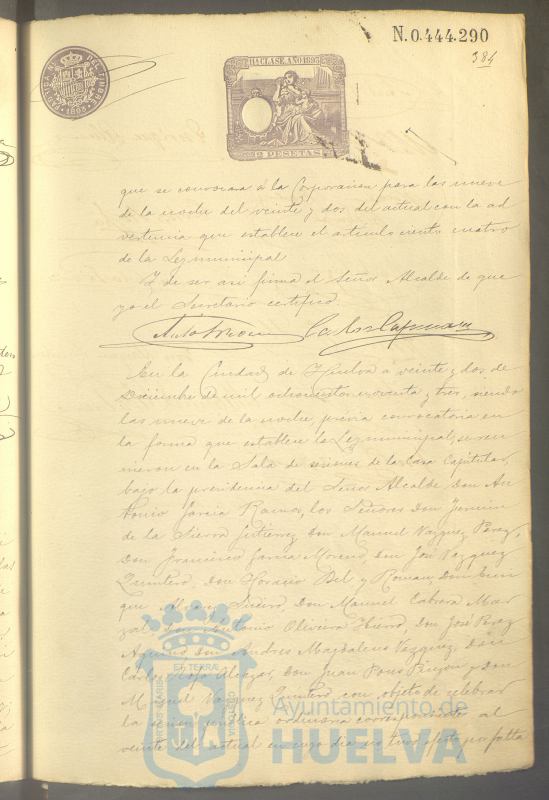 N.0.444.290
384
11ª CLASE. AÑO 1893
2 PESETAS
que se convocara á la Corporacion para las nueve
de la noche del veinte y dos del actual con la ad
vertencia que establece el articulo ciento cuatro
de la Ley municipal
Y de ser asi firma el Señor Alcalde de que
yo el Secretario certifico.
En la Ciudad de Huelva á veinte y dos de
Diciembre de mil ochocientos noventa y tres, siendo
las nueve de la noche, previa convocatoria en
la forma que establece la Ley municipal, se reu
nieron en la Sala de sesiones de la Casa Capitular,
bajo la presidencia del Señor Alcalde Don An
tonio Garcia Ramos, los Señores Don Fermin
de la Sierra Gutierrez, Don Manuel Vazquez Perez,
Don Francisco Garcia Moreno, Don José Vazquez
Quintero, Don Horacio Bel y Roman, Don Enri
que Don Manuel Cabrera Mar
Don Antonio Oliveira Don José Perez
Don Andres Magdaleno Vazquez, Don
Carlos Don Juan Pons Pinzon y Don
Manuel Vazquez Quintero con objeto de celebrar
la sesion publica ordinaria correspondiente al
veinte del actual en cuyo dia no tuvo efecto por falta
Ayuntamiento de
HUELVA